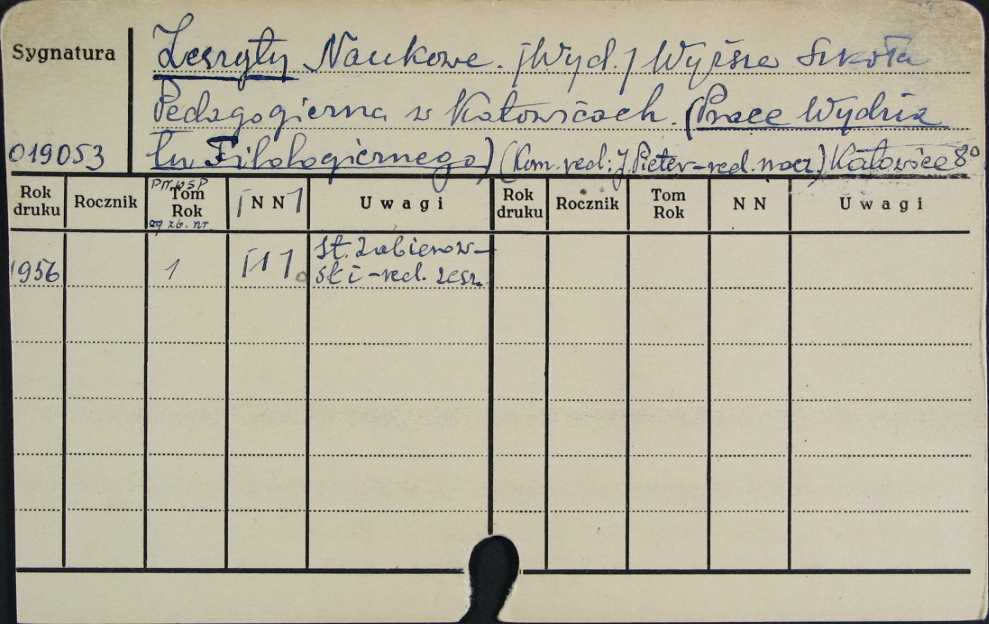 Sygnatura
Zeszyty Naukowe. [Wyd.] Wyższa Szkoła
Pedagogiczna w Katowicach. (Prace Wydzia
019053
łu Filologicznego) (Kom. red: J. Pieter - red. nacz.) Katowice 8°
Rok druku Rocznik Pr. WSP Tom Rok og. zb. nr. [NN] Uwagi Rok druku Rocznik Tom Rok NN Uwagi
1956 1 [1] St. Zabierow-
ski - red. zesz.